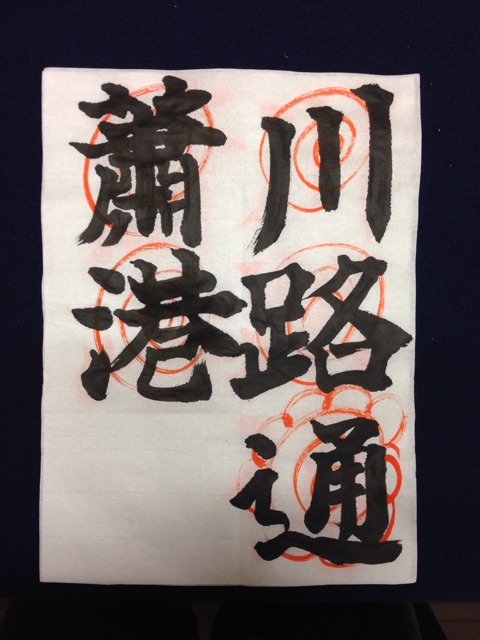 川路通
蕭港